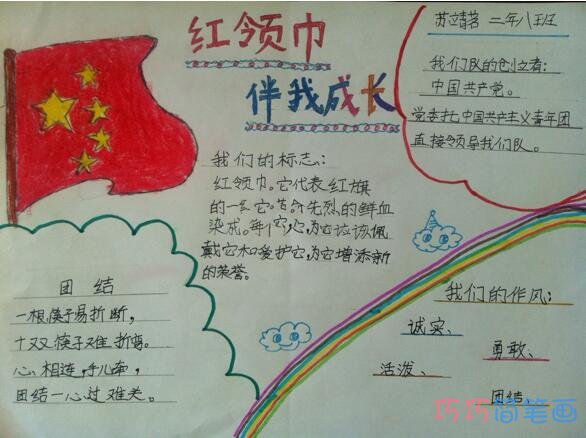 红领巾
伴我成长
苏靖茗 二年八班
我们队的创立者:
中国共产党。
党委托中国共产主义青年团
直接领导我们队。
我们的标志:
红领巾。它代表红旗
的一
先烈的鲜血
染成。每个
为它应该佩
戴它和爱护它,为它增添新
的荣誉。
团结
一根筷子易折断,
十双筷子难折弯。
心相连,手儿牵,
团结一心过难关。
我们的作风:
诚实、
勇敢、
活泼、
团结
巧巧简笔画